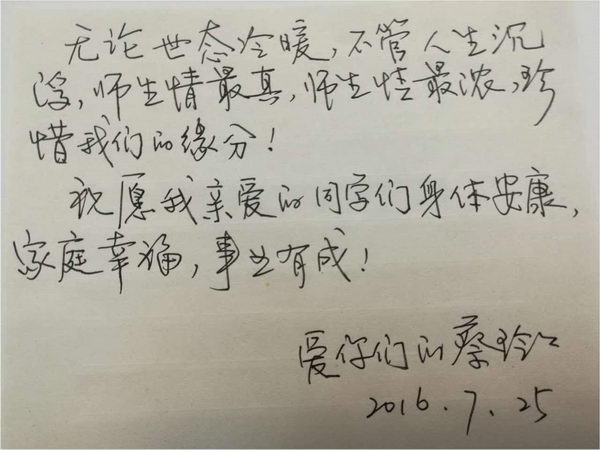 无论世态冷暖，不管人生沉
浮，师生情最真，师生情最浓，珍
惜我们的缘分！
祝愿我亲爱的同学们身体安康，
家庭幸福，事业有成！
爱你们的蔡玲
2016.7.25